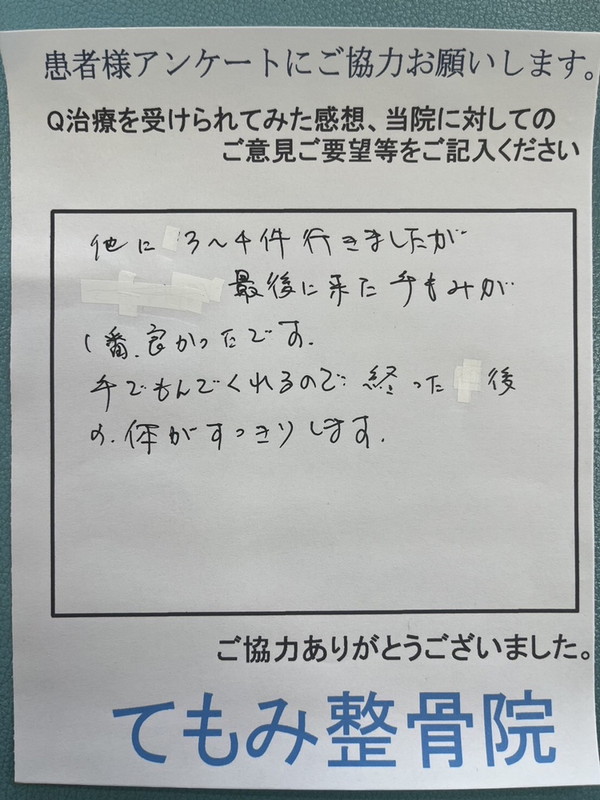 患者様アンケートにご協力お願いします。
Q治療を受けられてみた感想、当院に対しての
ご意見ご要望等をご記入ください
他に 3〜4件 行きましたが
最後に来た 手もみが
1番、良かったです。
手でもんでくれるので 終った 後
の、体がすっきりします。
ご協力ありがとうございました。
てもみ整骨院